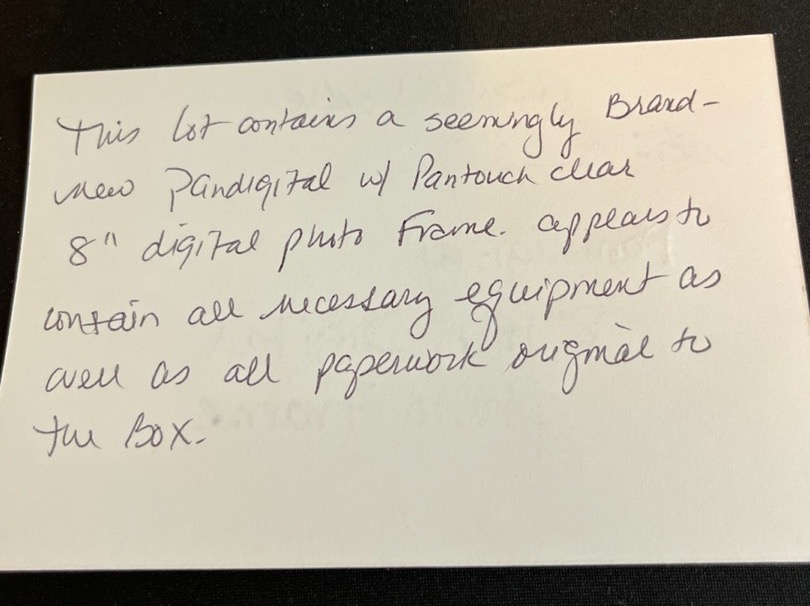 This lot contains a seemingly Brand-
new Pandigital w/ Pantouch clear
8" digital photo Frame. appears to
contain all necessary equipment as
well as all paperwork original to
the Box.